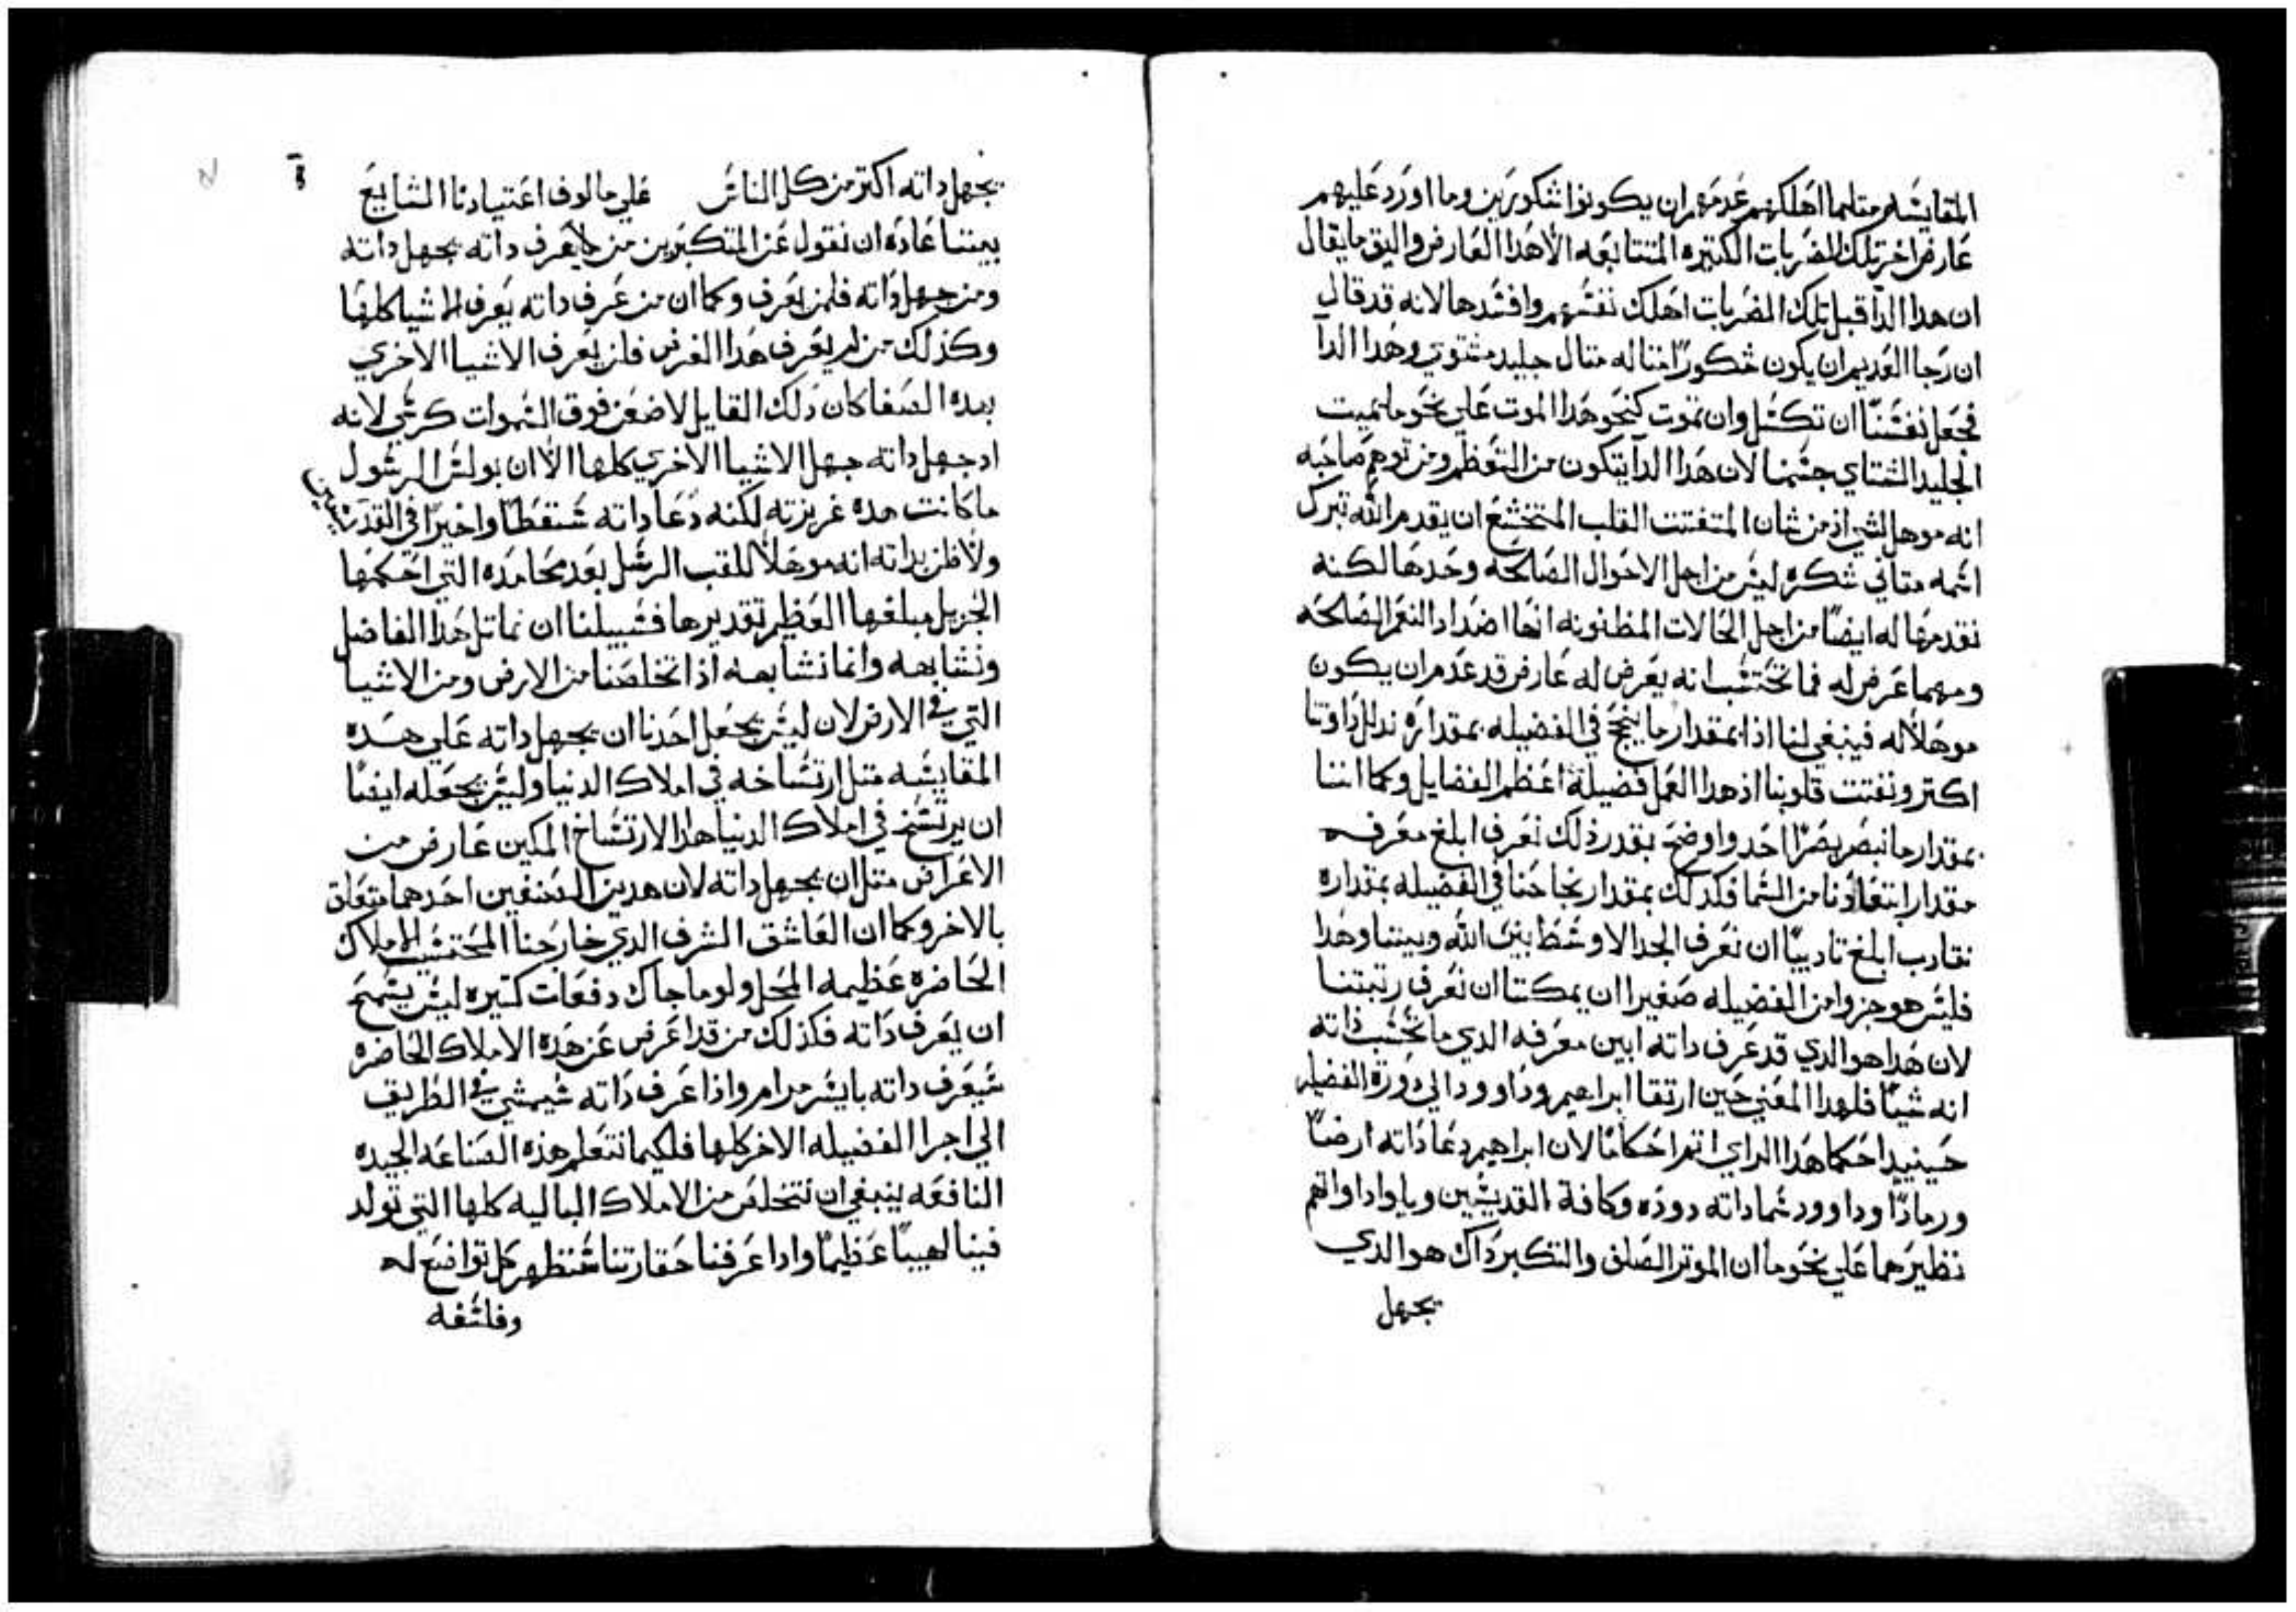 المقايسه متلما اهلكهم عدمهم ان يكونوا شكورين وما اورد عليهم
عارض اخر تلك الضربات الكتيره المتتابعه الا هدا العارض واليق ما يقال
ان هدا الدا قبل تلك الضربات اهلك نفسهم وافسدها لانه قد قال
ان رجا العديم ان يكون شكورًا متاله متال جليد مشتوي وهدا الدا
فجعل نفسنا ان تكسل وان تموت كنحو هدا الموت على نحو ما يميت
الجليد الشتاي جسمنا لان هدا الدا يتكون من التعظم ومن توهم صاحبه
انه موهل لشي اذ من شان المتفتت القلب المتخشع ان يقدم الله تبرك
اسمه متاتي شكره ليس من اجل الاحوال الصالحه وحدها لكنه
نقدمها له ايضًا من اجل الحالات المظنونه انها اضداد النعم الصالحه
ومهما عرض له فما تحتسب انه يعرض له عارض قد عدم ان يكون
موهلاً له فينبغي لنا اذا بمقدار ما ينجح في الفضيله بمقداره ندلل داوتنا
اكتر ونفتت قلوبنا اذ هدا العمل فضيلة اعظم الفضايل وكما اننا
بمقدار ما نبصر بصرًا احد واوضح بقدر ذلك نعرف ابلغ معرفه
مقدار ابتعادنا من السما فكدلك بمقدار نجاحنا في الفضيله بمقداره
نقادب ابلغ تاديبًا ان نعرف الجدا الاوسط بين الله وبيننا وهدا
فليس هو جزوا من الفضيله صغيرا ان يمكننا ان نعرف رتبتنا
لان هدا هو الدي قد عرف داته ابين معرفه الدي ما تحسب ذاته
انه شيًا فلهدا المعني حين ارتقا ابراهيم وداوود الي دورة الفضيله
حينيدٍ احكما هدا الراي اتم احكامًا لان ابراهيم دعا داته ارضًا
ورمادًا وداوود سما داته دوده وكافة القديسين وباواداواتهم
نظيرهما علي نحو ما ان الموتر الصلف والتكبر داك هو الدي
يجهل
يجهل داته اكتر من كل الناس علي مالوف اعتيادنا الشايع
بيننا عاده ان نقول عن المتكبرين من لا يعرف داته يجهل داته
ومن جهل داته فلمن يعرف وكما ان من عرف داته يعرف الاشيا كلها
وكذلك من لم يعرف هدا الغرض فلن يعرف الاشيا الاخري
بهده الصفا كان دلك القايل لاضعن فوق السموات كرسي لانه
اد جهل داته جهل الاشيا الاخري كلها الاّ ان بولس الرسول
ما كانت هده غريزته لكنه دعا داته سقطًا واخيرًا في القديسين
ولا ظن بداته انه موهلاً للقب الرسل بعد محامده التي احكمها
الجزيل مبلغها العظيم تقديرها فسبيلنا ان نماتل هدا الفاضل
ونشابهه وانما نشابهه اذا تخلصنا من الارض ومن الاشيا
التي في الارض لان ليس يجعل احدنا ان يجهل داته علي هده
المقايسه متل ارتساخه في املاك الدنيا وليس يجعله ايضًا
ان يرتسخ في املاك الدنيا هدا الارتساخ المكين عارض من
الاعراض متل ان يجهل داته لان هدين الصنفين احدهما متعلق
بالاخر وكما ان العاشق الشرف الدي خارجنا المحتسب الاملاك
الحاضره عظيمه المحل ولو ما جاك دفعات كتيره ليس يسمح
ان يعرف داته فكذلك من قد اعرض عن هذه الاملاك الحاضره
سيعرف داته بايسر مرام واذا عرف داته سيمشي في الطريق
الي اجرا الفضيله الاخر كلها فلكيما نتعلم هذه الصناعه الجيده
النافعه ينبغي ان نتخلص من الاملاك الباليه كلها التي تولد
فينا لهيبًا عظيمًا وادا عرفنا حقارتنا سنظهر كل تواضع له
وفلسفه